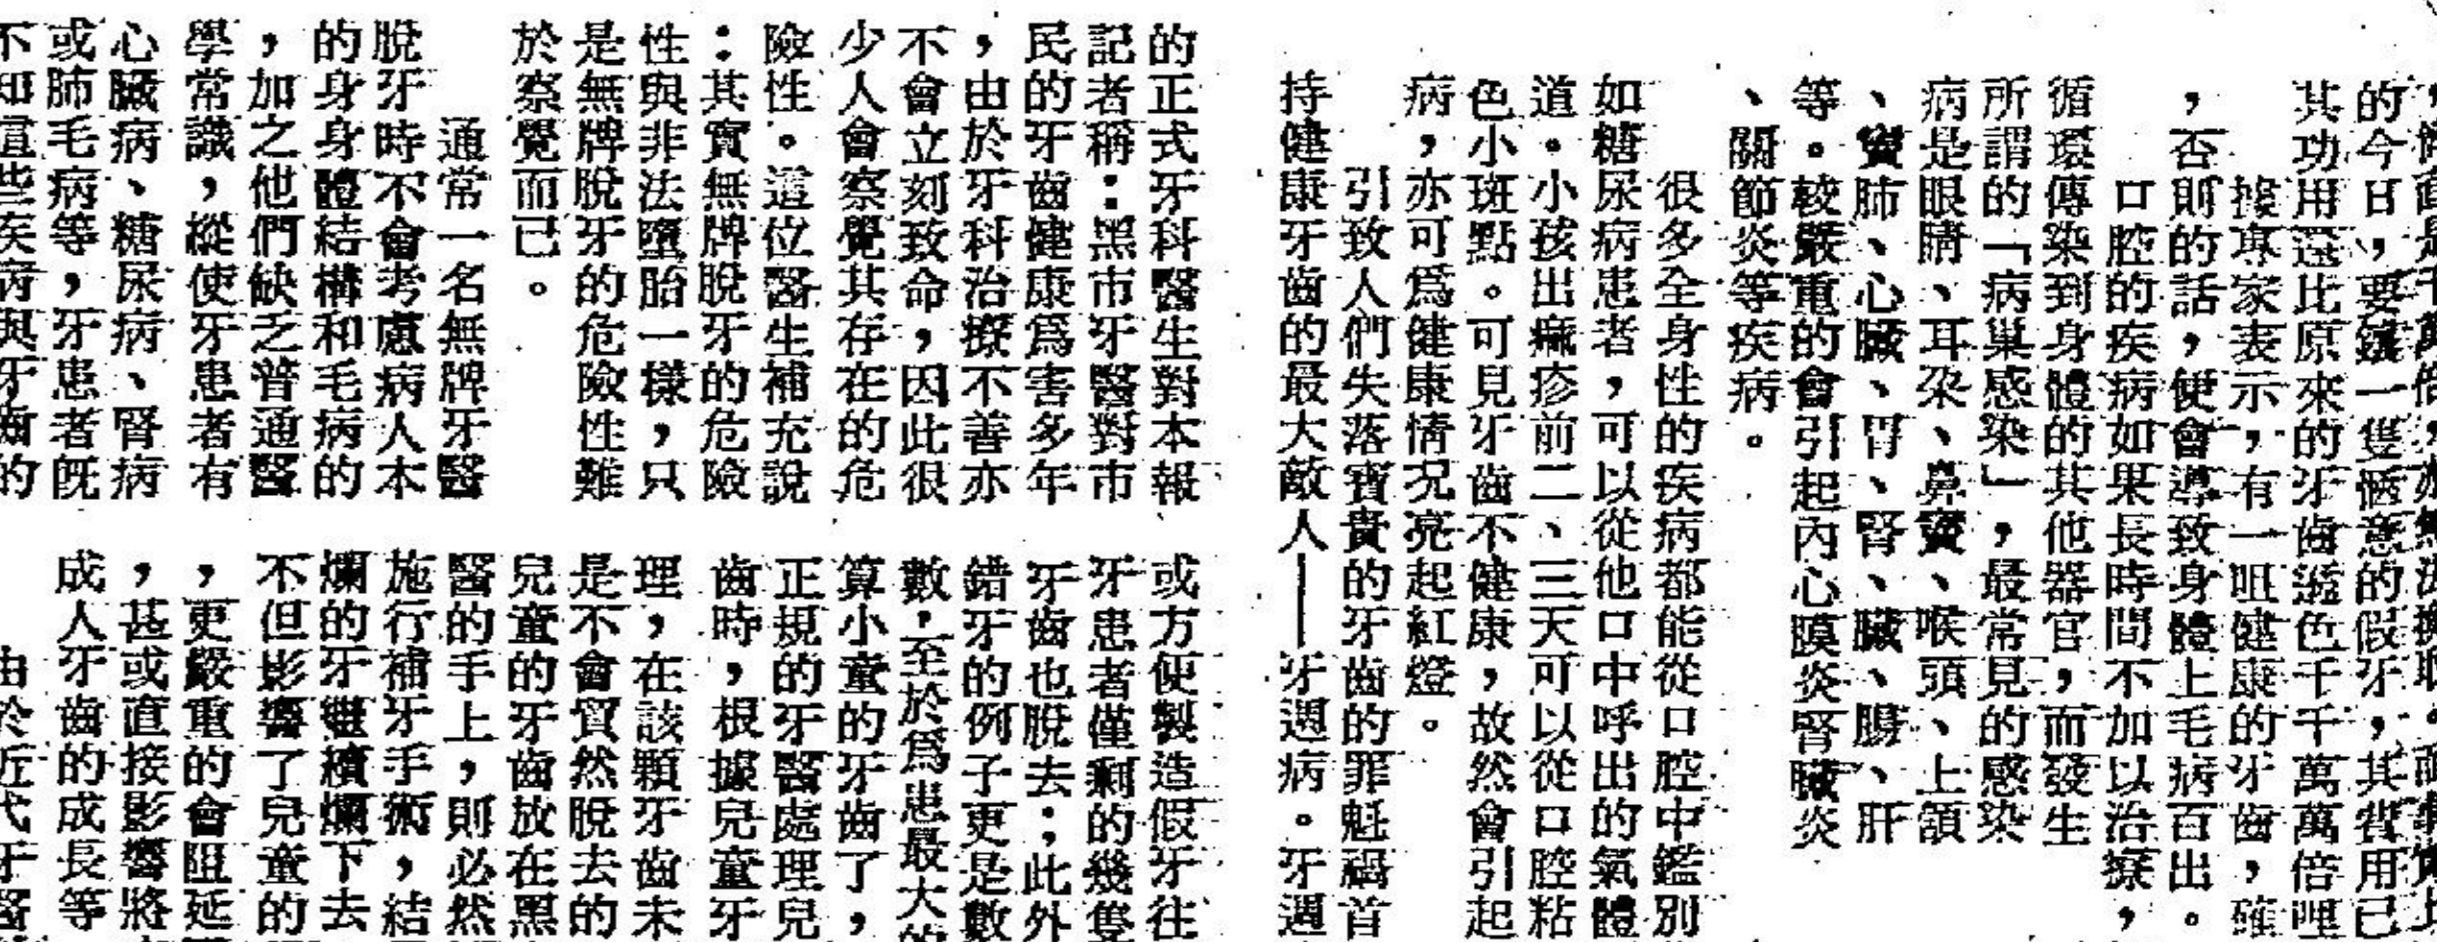 是千萬倍，
的今日，要鑲一隻愜意的假牙，其費用已
其功用還比原來的牙齒遜色千千萬萬倍哩
據專家表示，有一咀健康的牙齒，確
，否則的話，便會導致身體上毛病百出。
口腔的疾病如果長時間不加以治療，
循環傳染到身體的其他器官，而發生
所謂的「病巢感染」，最常見的感染
病是眼睛、耳朶、鼻竇、喉頭、上頜
、竇肺、心臟、胃、腎、臟、腸、肝
等。較嚴重的會引起內心膜炎腎臟炎
、關節炎等疾病。
很多全身性的疾病都能從口腔中鑑別
如糖尿病患者，可以從他口中呼出的氣體
道。小孩出痲疹前二、三天可以從口腔粘
色小斑點。可見牙齒不健康，故然會引起
病，亦可爲健康情况亮起紅燈。
引致人們失落寶貴的牙齒的罪魁禍首
持健康牙齒的最大敵人——牙週病。牙週
的正式牙科醫生對本報
記者稱：黑市牙醫對市
民的牙齒健康爲害多年
，由於牙科治療不善亦
不會立刻致命，因此很
少人會察覺其存在的危
險性。這位醫生補充說
：其實無牌脫牙的危險
性與非法墮胎一樣，只
是無牌脫牙的危險性難
於察覺而已。
通常一名無牌牙醫
脫牙時不會考慮病人本
的身身體結構和毛病的
，加之他們缺乏普通醫
學常識，縱使牙患者有
心臟病、糖尿病、腎病
或肺毛病等，牙患者旣
不知這些疾病與牙齒的
或方便製造假牙往
牙患者僅剩的幾隻
牙齒也脫去；此外
錯牙的例子更是數
數，至於爲患最大的
算小童的牙齒了，
正規的牙醫處理兒
齒時，根據兒童牙
理，在該顆牙齒未
是不會貿然脫去的
兒童的牙齒放在黑
醫的手上，則必然
施行補牙手術，結
爛的牙繼續爛下去
不但影響了兒童的
，更嚴重的會阻延
，甚或直接影響將
成人牙齒的成長等
由於近代牙醫